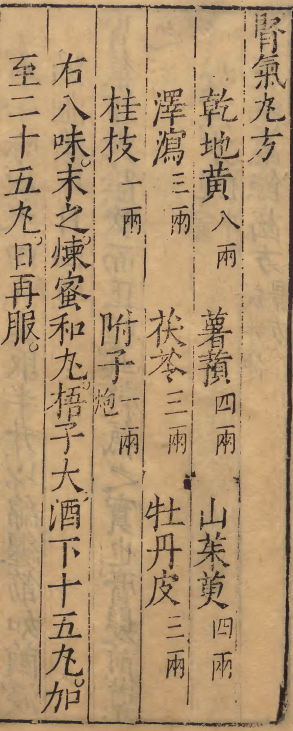 腎氣丸方
乾地黃八兩 薯蕷四兩 山茱萸四兩
澤瀉三兩 茯苓三兩 牡丹皮三兩
桂枝一兩 附子炮一兩
右八味。末之。煉蜜和丸。梧子大。酒下十五丸。加
至二十五丸。日再服。